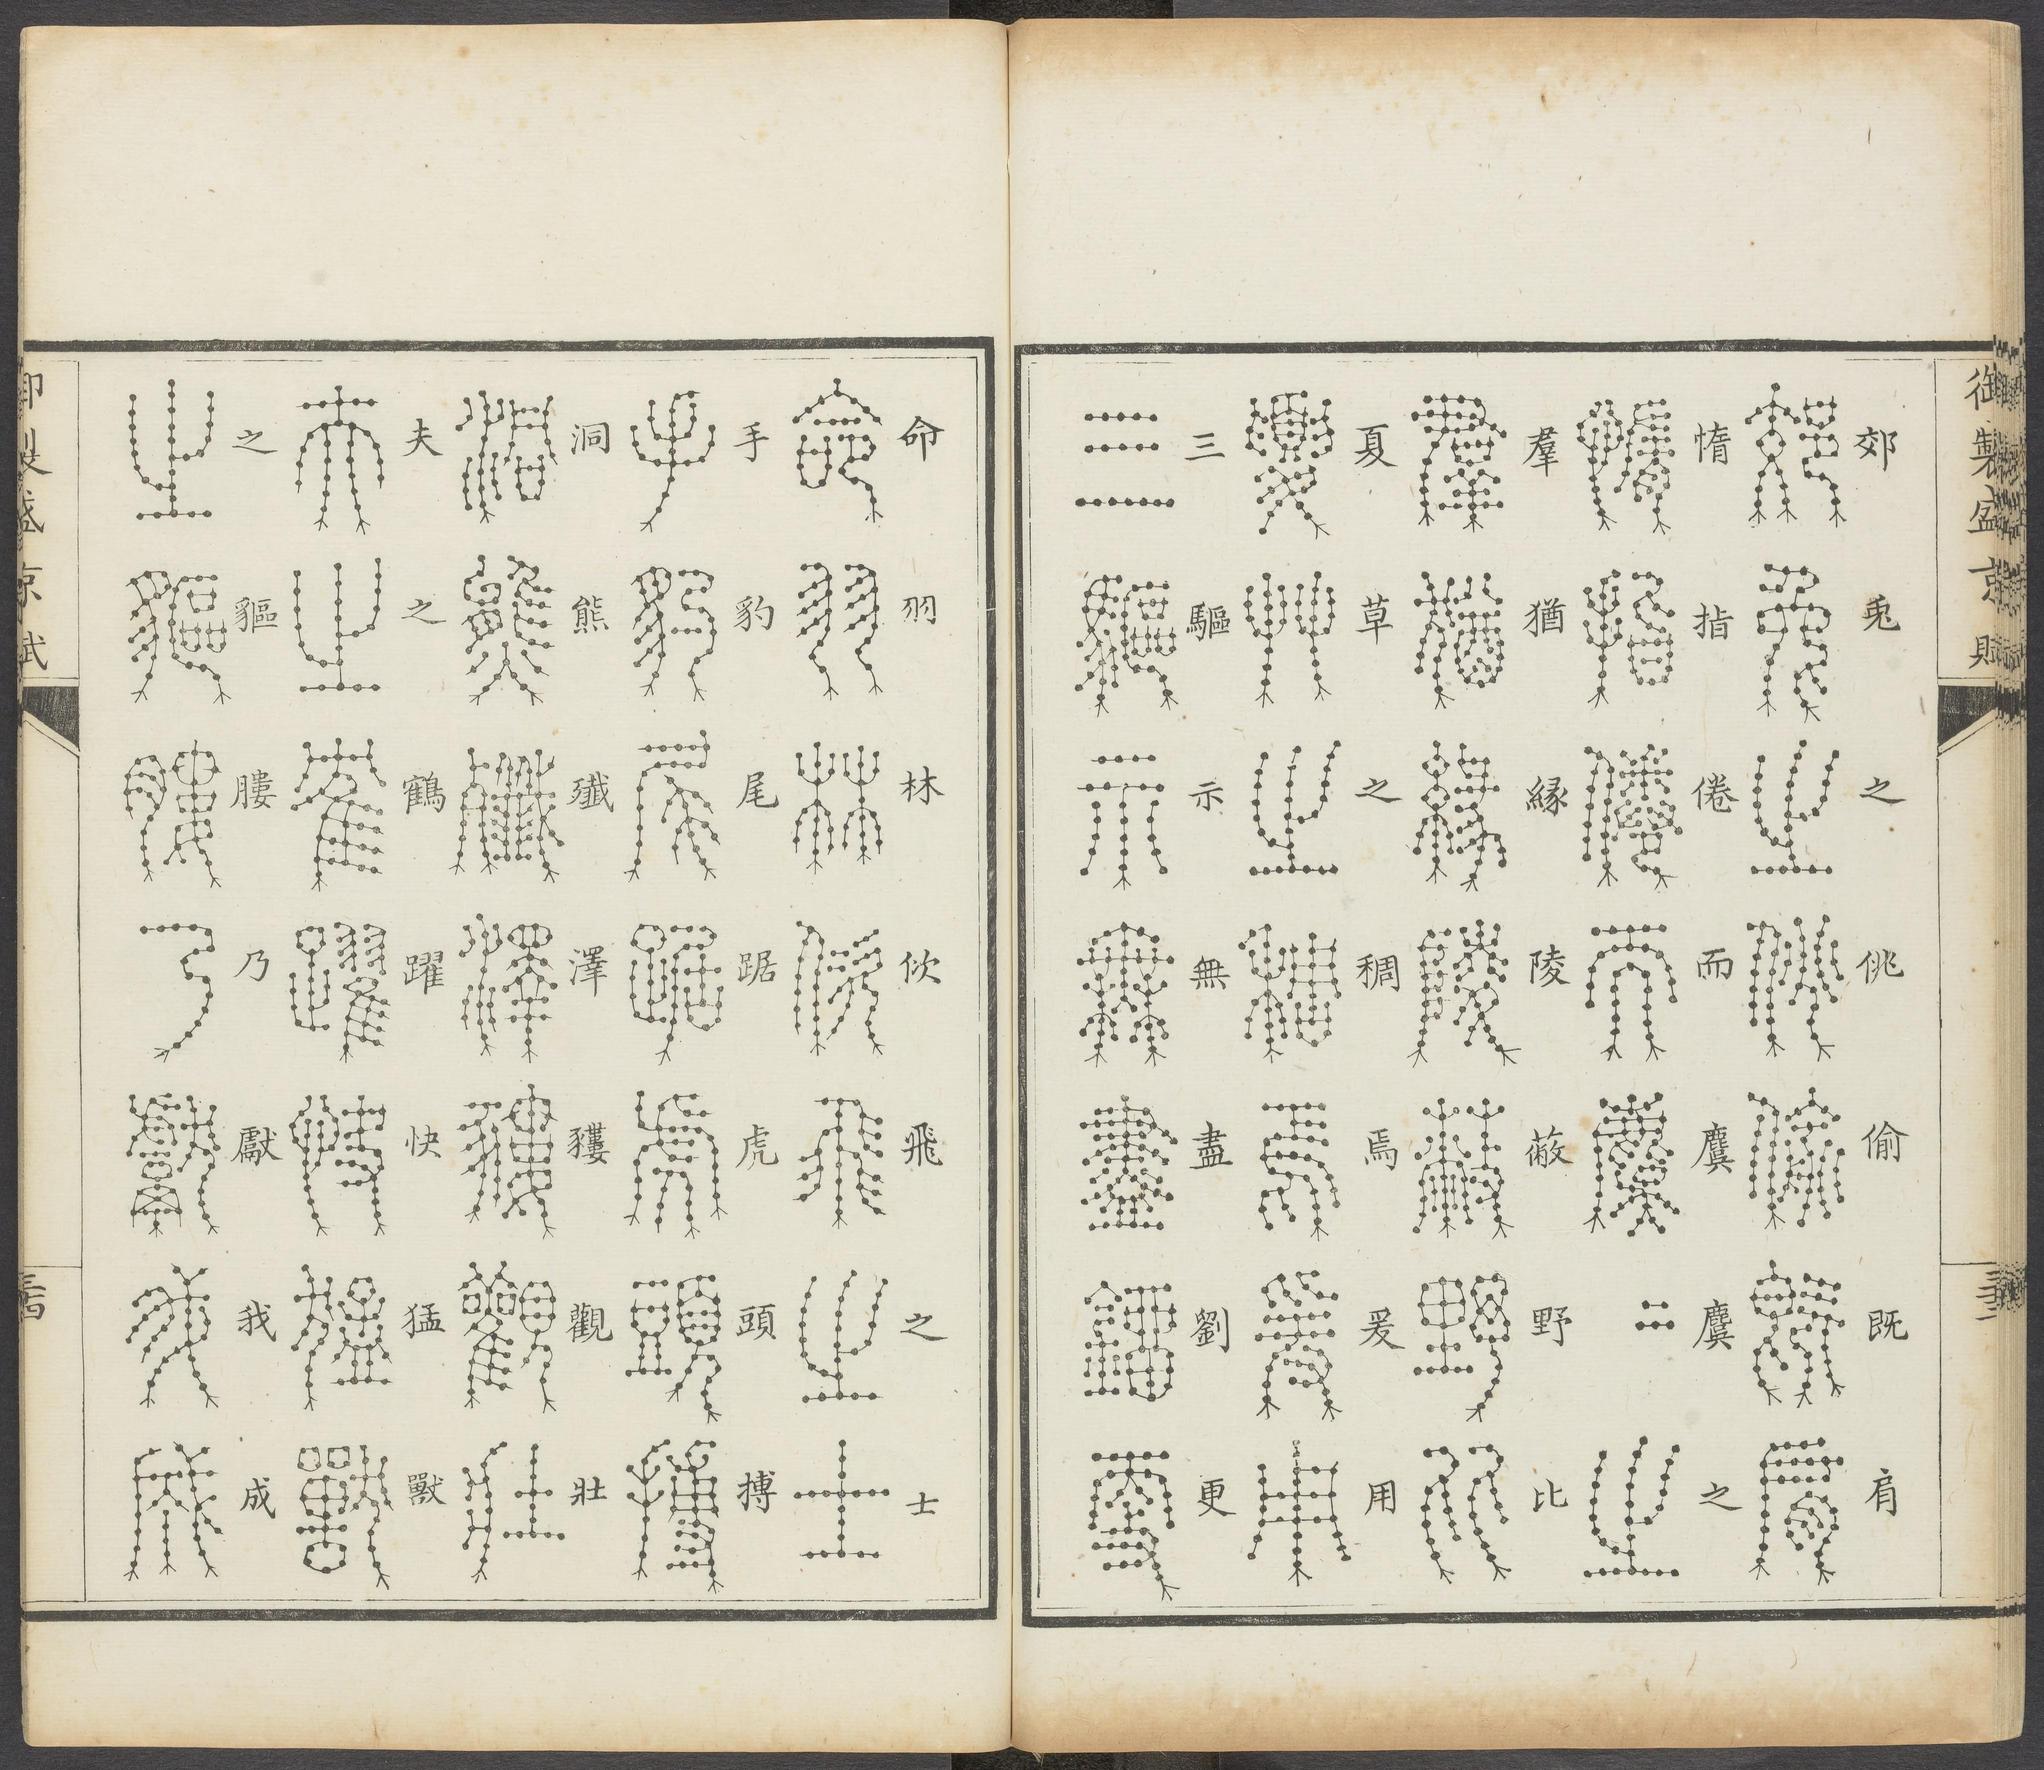 御製盛京賦
郊兎之佻偷既肩
惰㨖倦而麌麌之
羣猶緣陵蔽野比
夏草之稠焉爰用
三驅示無盡劉更
三三
命羽林佽飛之士
手豹尾踞虎頭搏
洞熊殲澤貗觀壯
夫之鶴躍快猛獸
之貙膢乃獻我成
御製盛京賦
三四